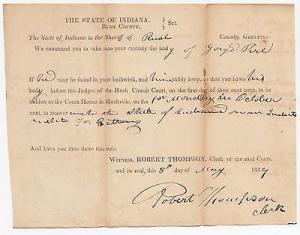 THE STATE OF INDIANA,
RUSH COUNTY, } Sct.
The State of Indiana to the Sheriff of Rush County, GREETING:
We command you to take into your custody the body of
If he may be found in your bailiwick, and him safely keep, so that you have his
body before the Judges of the Rush Circuit Court, on the first day of their next term, to be
holden at the Court House in Rushville, on the 1st Monday in October
next, to answer unto the State of Indiana
for
And have you then there this writ.
WITNESS, ROBERT THOMPSON, Clerk of the said Court,
and its seal, this 8th day of May 1839
Robert Thompson
Clerk